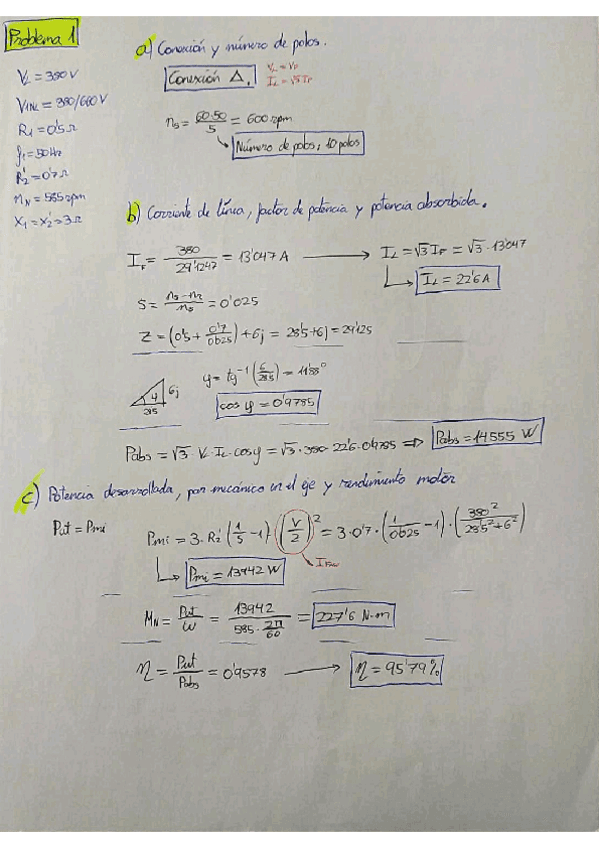 Problema 1
V_L = 380 V
V_INL = 380/660 V
R1 = 0'5 Ω
f1 = 50 Hz
R2' = 0'7 Ω
n_N = 585 rpm
X1 = X2' = 3 Ω
a) Conexión y número de polos.
Conexión Δ.
V_L = V_F
I_L = √3 I_F
n_s = 60·50/5 = 600 rpm
Número de polos; 10 polos
b) Corriente de línea, factor de potencia y potencia absorbida.
I_F = 380/29'1247 = 13'047 A → I_L = √3 I_F = √3 · 13'047
I_L = 22'6 A
S = (n_s - n_r)/n_s = 0'025
Z = (0'5 + 0'7/0'025) + 6j = 28'5 + 6j = 29'125
φ
6j
28'5
φ = tg⁻¹(6/28'5) = 11'88°
cos φ = 0'9785
Pabs = √3 · V_L · I_L · cos φ = √3 · 380 · 22'6 · 0'9785 ⇒ Pabs = 14555 W
c) Potencia desarrollada, par mecánico en el eje y rendimiento motor
Put = Pmi
Pmi = 3 · R2' (1/s - 1) · (V/Z)² = 3 · 0'7 · (1/0'025 - 1) · (380²/(28'5² + 6²))
Pmi = 13942 W
M_N = Put/W = 13942/(585 · 2π/60) = 227'6 N·m
η = Put/Pabs = 0'9578 → η = 95'79%